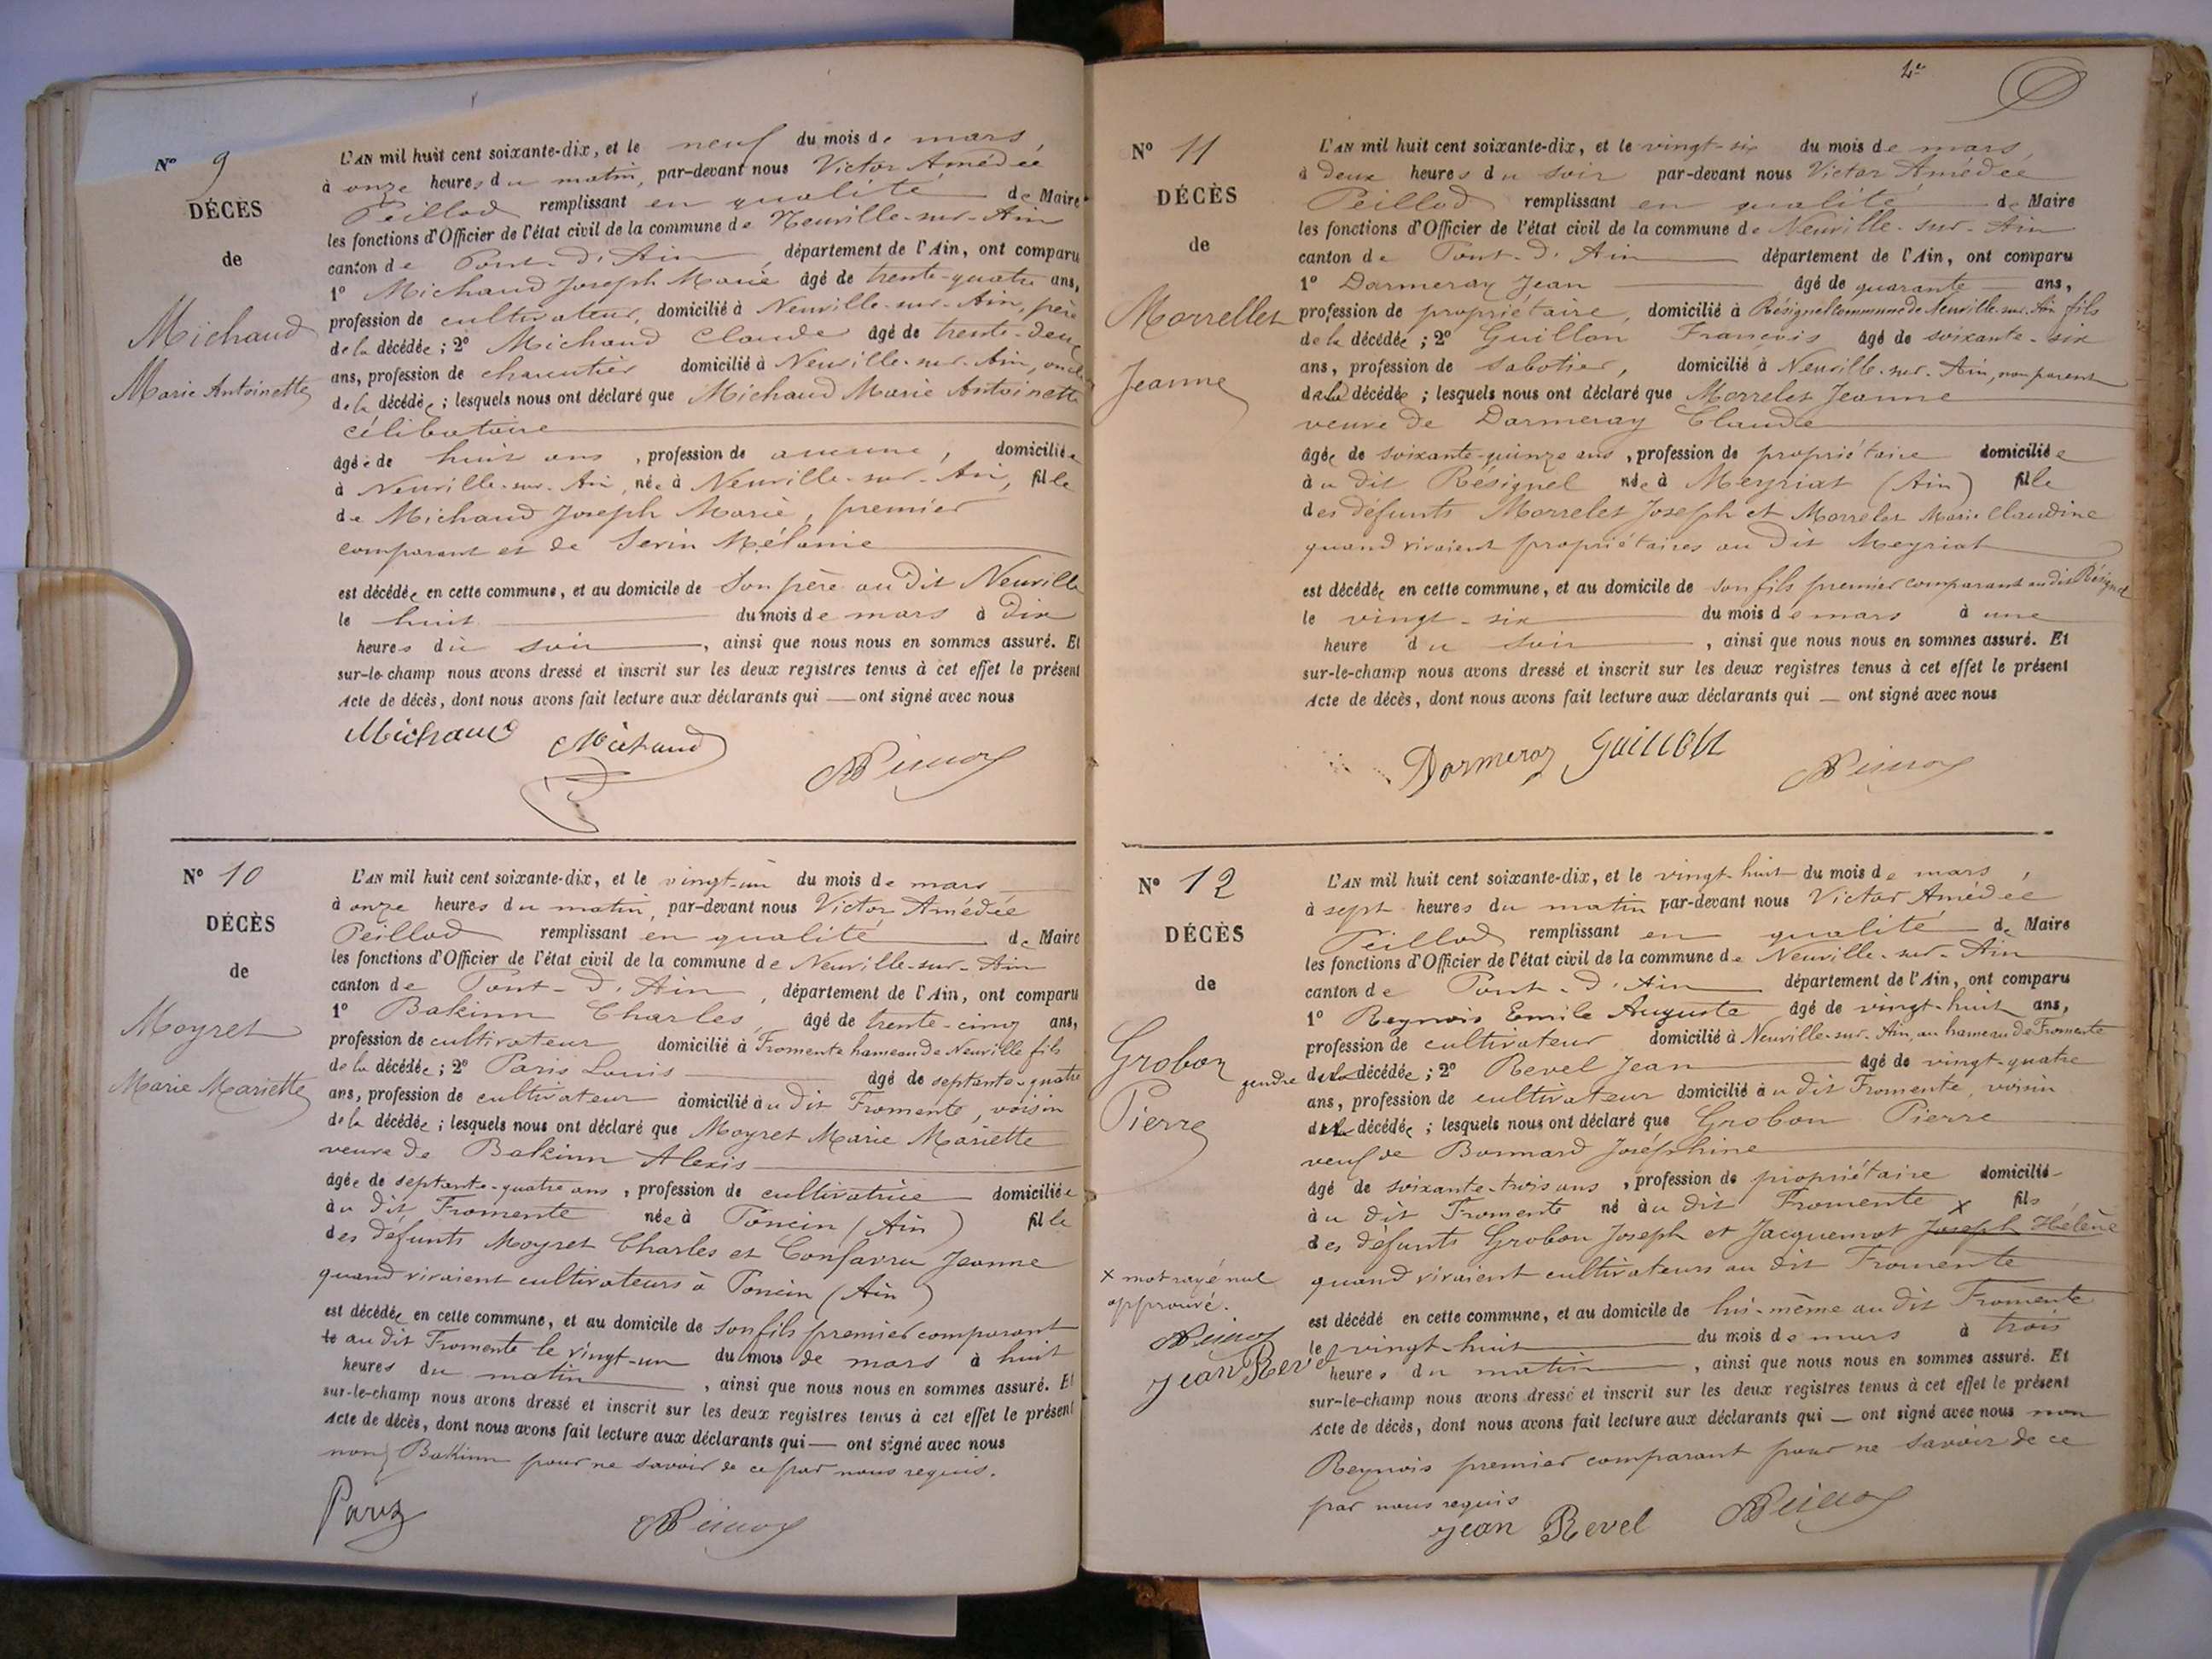 N° 9
DÉCÈS
de
Michaud
Marie Antoinette
L'AN mil huit cent soixante-dix, et le neuf du mois de mars,
à onze heures du matin, par-devant nous Victor Amédée
Peillod remplissant en qualité de Maire
les fonctions d'Officier de l'état civil de la commune de Neuville-sur-Ain
canton de Pont-d'Ain, département de l'Ain, ont comparu
1° Michaud Joseph Marie âgé de trente-quatre ans,
profession de cultivateur, domicilié à Neuville-sur-Ain, père
de la décédée ; 2° Michaud Claude âgé de trente-deux
ans, profession de charcutier domicilié à Neuville-sur-Ain, oncle
de la décédée ; lesquels nous ont déclaré que Michaud Marie Antoinette
célibataire
âgée de huit ans, profession de aucune, domiciliée
à Neuville-sur-Ain, née à Neuville-sur-Ain, fille
de Michaud Joseph Marie, premier
comparant et de Serin Mélanie
est décédée en cette commune, et au domicile de son père au dit Neuville
le huit du mois de mars à dix
heures du soir, ainsi que nous nous en sommes assuré. Et
sur-le-champ nous avons dressé et inscrit sur les deux registres tenus à cet effet le présent
Acte de décès, dont nous avons fait lecture aux déclarants qui — ont signé avec nous
Michaud Michaud
N° 10
DÉCÈS
de
Moyret
Marie Mariette
L'AN mil huit cent soixante-dix, et le vingt-un du mois de mars
à onze heures du matin, par-devant nous Victor Amédée
Peillod remplissant en qualité de Maire
les fonctions d'Officier de l'état civil de la commune de Neuville-sur-Ain
canton de Pont-d'Ain, département de l'Ain, ont comparu
1° Bakinn Charles, âgé de trente-cinq ans,
profession de cultivateur domicilié à Fromente hameau de Neuville fils
de la décédée ; 2° Paris Louis âgé de septante-quatre
ans, profession de cultivateur domicilié au dit Fromente, voisin
de la décédée ; lesquels nous ont déclaré que Moyret Marie Mariette
veuve de Bakinn Alexis
âgée de septante-quatre ans, profession de cultivatrice domiciliée
au dit Fromente née à Poncin (Ain) fille
des défunts Moyret Charles et Confavru Jeanne
quand vivaient cultivateurs à Poncin (Ain)
est décédée en cette commune, et au domicile de son fils premier comparant
le au dit Fromente le vingt-un du mois de mars à huit
heures du matin, ainsi que nous nous en sommes assuré. Et
sur-le-champ nous avons dressé et inscrit sur les deux registres tenus à cet effet le présent
Acte de décès, dont nous avons fait lecture aux déclarants qui — ont signé avec nous
non Bakinn pour ne savoir de ce par nous requis.
Pariz
N° 11
DÉCÈS
de
Morrellet
Jeanne
L'AN mil huit cent soixante-dix, et le vingt-six du mois de mars,
à deux heures du soir par-devant nous Victor Amédée
Peillod remplissant en qualité de Maire
les fonctions d'Officier de l'état civil de la commune de Neuville-sur-Ain
canton de Pont-d'Ain département de l'Ain, ont comparu
1° Darmeray Jean âgé de quarante ans,
profession de propriétaire, domicilié à Résignel commune de Neuville-sur-Ain fils
de la décédée ; 2° Guillon François âgé de soixante-six
ans, profession de sabotier, domicilié à Neuville-sur-Ain, non parent
de la décédée ; lesquels nous ont déclaré que Morrelet Jeanne
veuve de Darmeray Claude
âgée de soixante-quinze ans, profession de propriétaire domiciliée
au dit Résignel née à Meyriat (Ain) fille
des défunts Morrelet Joseph et Morrelet Marie Claudine
quand vivaient propriétaires au dit Meyriat
est décédée en cette commune, et au domicile de son fils premier comparant au dit Résignel
le vingt-six du mois de mars à une
heure du soir, ainsi que nous nous en sommes assuré. Et
sur-le-champ nous avons dressé et inscrit sur les deux registres tenus à cet effet le présent
Acte de décès, dont nous avons fait lecture aux déclarants qui — ont signé avec nous
Darmeray Guillon
N° 12
DÉCÈS
de
Grobon
Pierre
L'AN mil huit cent soixante-dix, et le vingt-huit du mois de mars,
à sept heures du matin par-devant nous Victor Amédée
Peillod remplissant en qualité de Maire
les fonctions d'Officier de l'état civil de la commune de Neuville-sur-Ain
canton de Pont-d'Ain département de l'Ain, ont comparu
1° Reynois Emile Auguste âgé de vingt-huit ans,
profession de cultivateur domicilié à Neuville-sur-Ain, au hameau de Fromente
gendre de la décédée ; 2° Revel Jean âgé de vingt-quatre
ans, profession de cultivateur domicilié au dit Fromente, voisin
de la décédée ; lesquels nous ont déclaré que Grobon Pierre
veuf de Bonnard Joséphine
âgé de soixante-trois ans, profession de propriétaire domicilié
au dit Fromente né au dit Fromente x fils
des défunts Grobon Joseph et Jacquemot Joseph Hélène
quand vivaient cultivateurs au dit Fromente
x mot rayé nul
approuvé.
Jean Revel
est décédé en cette commune, et au domicile de lui-même au dit Fromente
le vingt-huit du mois de mars à trois
heures du matin, ainsi que nous nous en sommes assuré. Et
sur-le-champ nous avons dressé et inscrit sur les deux registres tenus à cet effet le présent
Acte de décès, dont nous avons fait lecture aux déclarants qui — ont signé avec nous non
Reynois premier comparant pour ne savoir de ce
par nous requis
Jean Revel